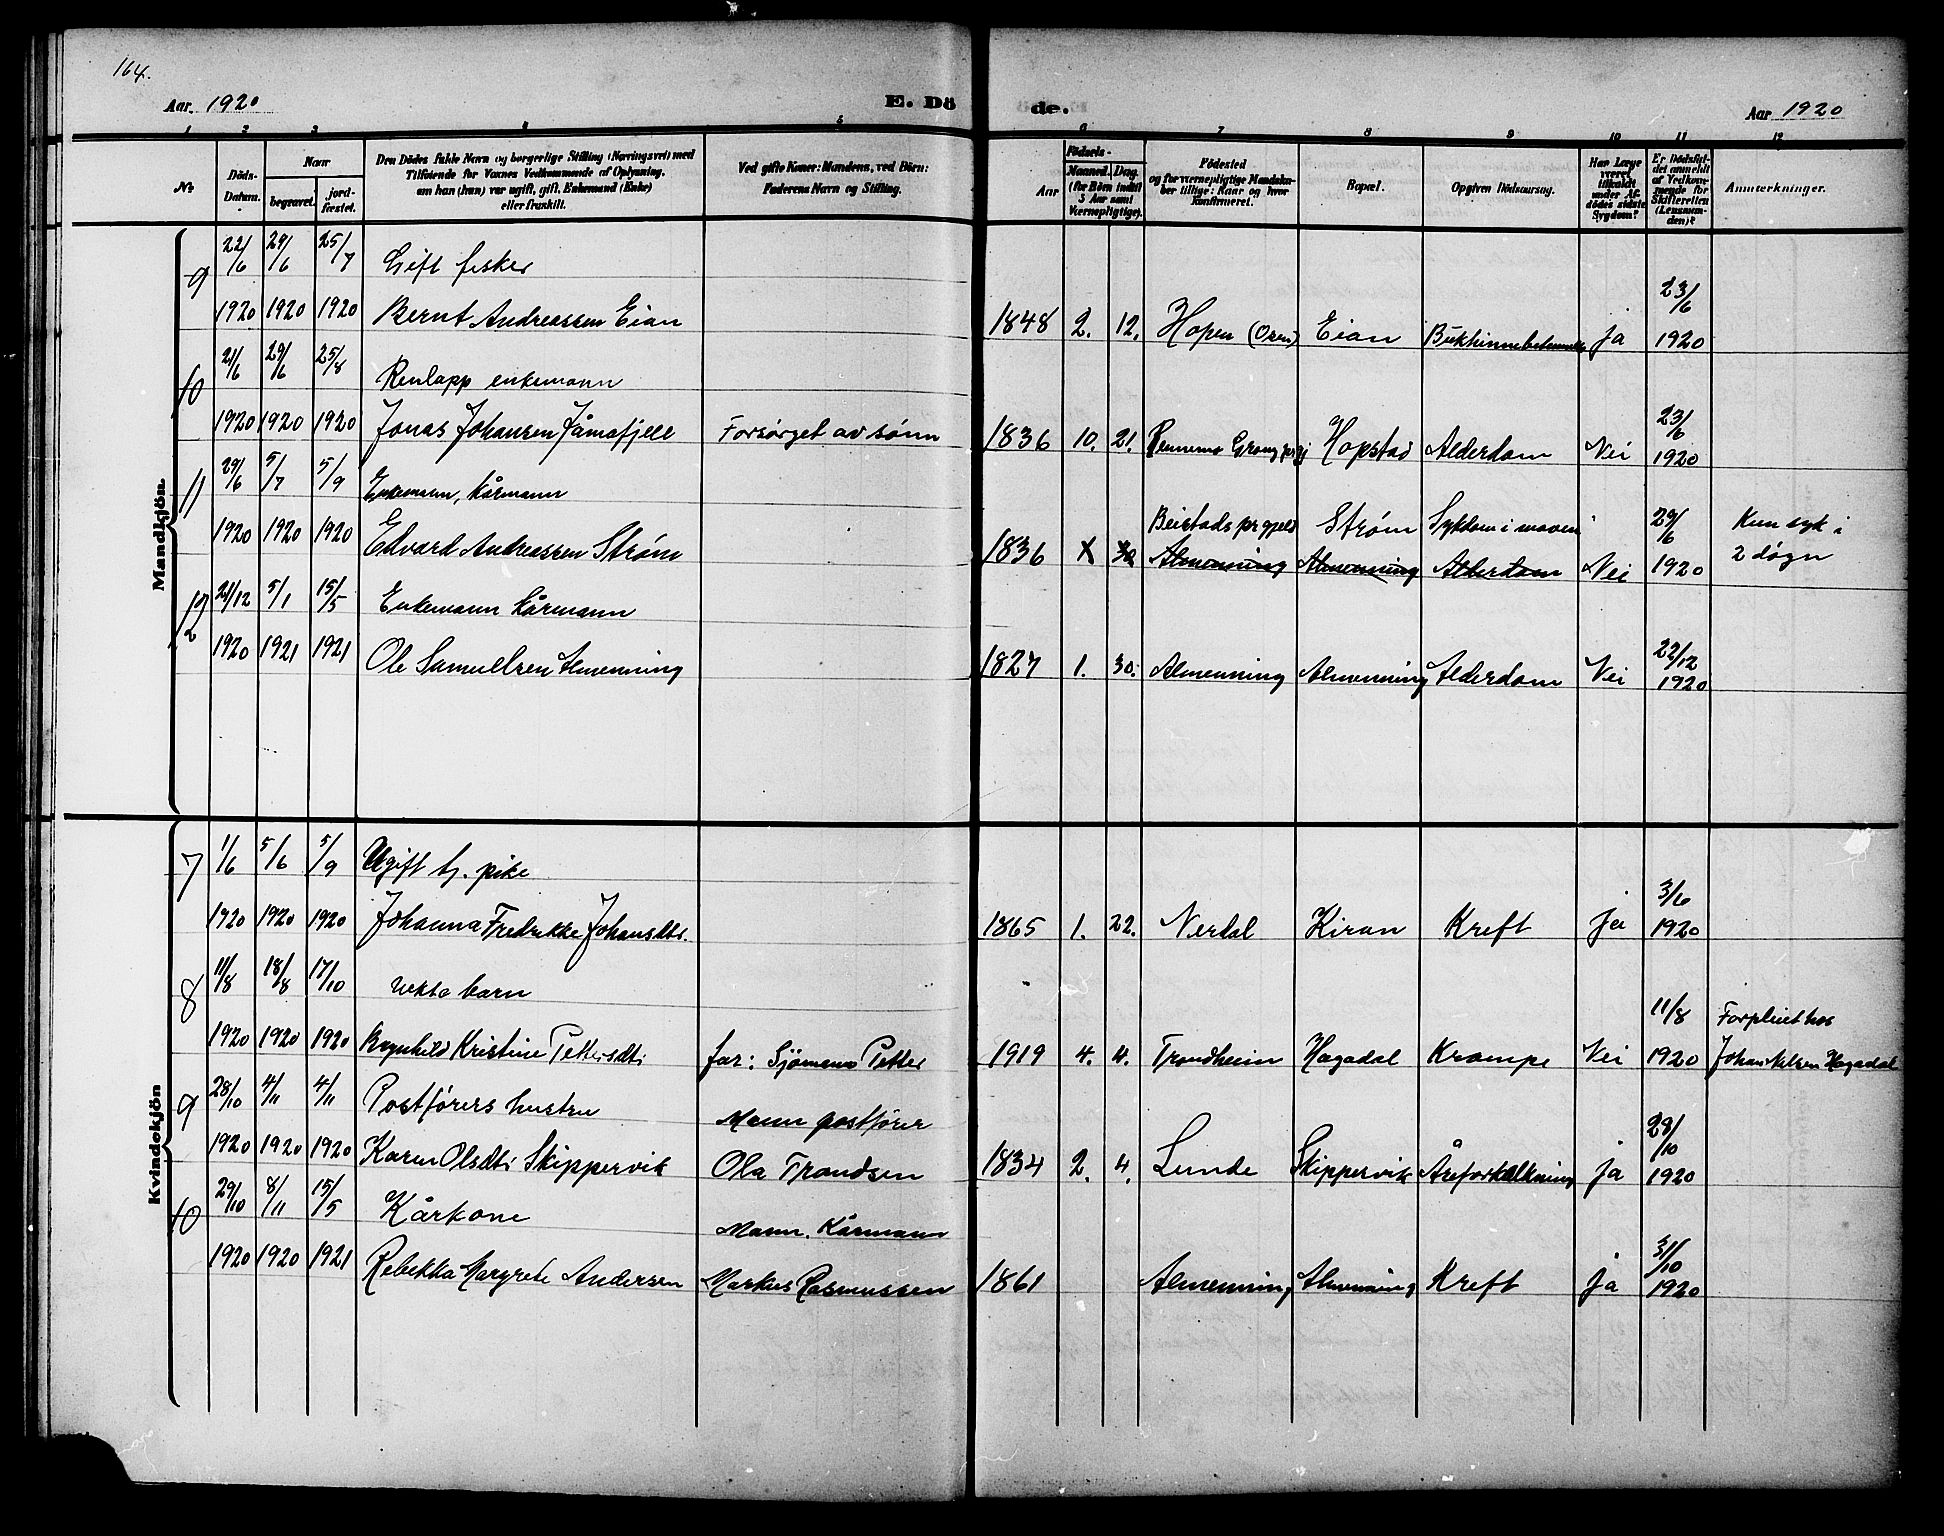 164.
Aar 1920 E. Dö de. Aar 1920
1 2 3 4 5 6 7 8 9 10 11 12
№
Döds-Datum.
Naar
begravet.
jord-fæstet.
Den Dödes fulde Navn og borgerlige Stilling (Næringsvei) med
Tilföiende for Voxnes Vedkommende af Oplysning,
om han (hun) var ugift, gift, Enkemand (Enke)
eller fraskilt.
Ved gifte Koner: Mandens, ved Börn:
Faderens Navn og Stilling.
Födsels-
Aar
Maaned. Dag.
(for Börn indtil
3 Aar samt
Værnepligtige).
Födested
og for værnepligtige Mandskaber tillige: Naar og hvor
konfirmeret.
Bopæl.
Opgiven Dödsaarsag.
Har Læge
været
tilkaldt
under Afdödes sidste
Sygdom?
Er Dödsfaldet anmeldt
af Vedkommende for
Skifteretten
(Lensmanden)?
Anmærkninger.
Mandkjön.
9 22/6 29/6 25/7 Gift fisker
1920 1920 1920 Bernt Andreassen Eian 1848 2. 12. Hopen (Oren) Eian ja 23/6 1920
10 21/6 29/6 25/8 Renlapp enkemann
1920 1920 1920 Jonas Johansen Jåmafjell Forsørget av sønn 1836 10. 21. Hopstad Alderdom Nei 23/6 1920
11 29/6 5/7 5/9 Enkemann, kårmann
Beistads prgjeld Strøm Sykdom i maven 29/6 Kun syk i
1920 1920 1920 Edvard Andreassen Strøm 1836 Almenning Almenning Alderdom Nei 1920 2 døgn
12 21/12 5/1 15/5 Enkemann kårmann
1920 1921 1921 Ole Samuelsen Almenning 1827 1. 30. Almenning Almenning Alderdom Nei 22/12 1920
Kvindekjön
7 1/6 5/6 5/9 Ugift tj. pike
1920 1920 1920 Johanna Fredrikke Johansdtr. 1865 1. 22. Nerdal Kiran Kreft ja 3/6 1920
8 11/8 18/8 17/10 uekte barn 11/8 Forpleiet hos
1920 1920 1920 Ragnhild Kristine Pettersdtr far: Sjømann Petter 1919 4. 4. Trondheim Hagadal Krampe Nei 1920 Johan Nilsen Hagadal
9 28/10 4/11 4/11 Postførers hustru Mann postfører
1920 1920 1920 Karen Olsdtr Skippervik Ola Trondsen 1834 2. 4. Lunde Skippervik Åreforkalkning ja 29/10 1920
10 29/10 8/11 15/5 Kårkone Mann. Kårmann
1920 1920 1921 Rebekka Margrete Andersen Markus Rasmussen 1861 Almenning Almenning Kreft ja 31/10 1920